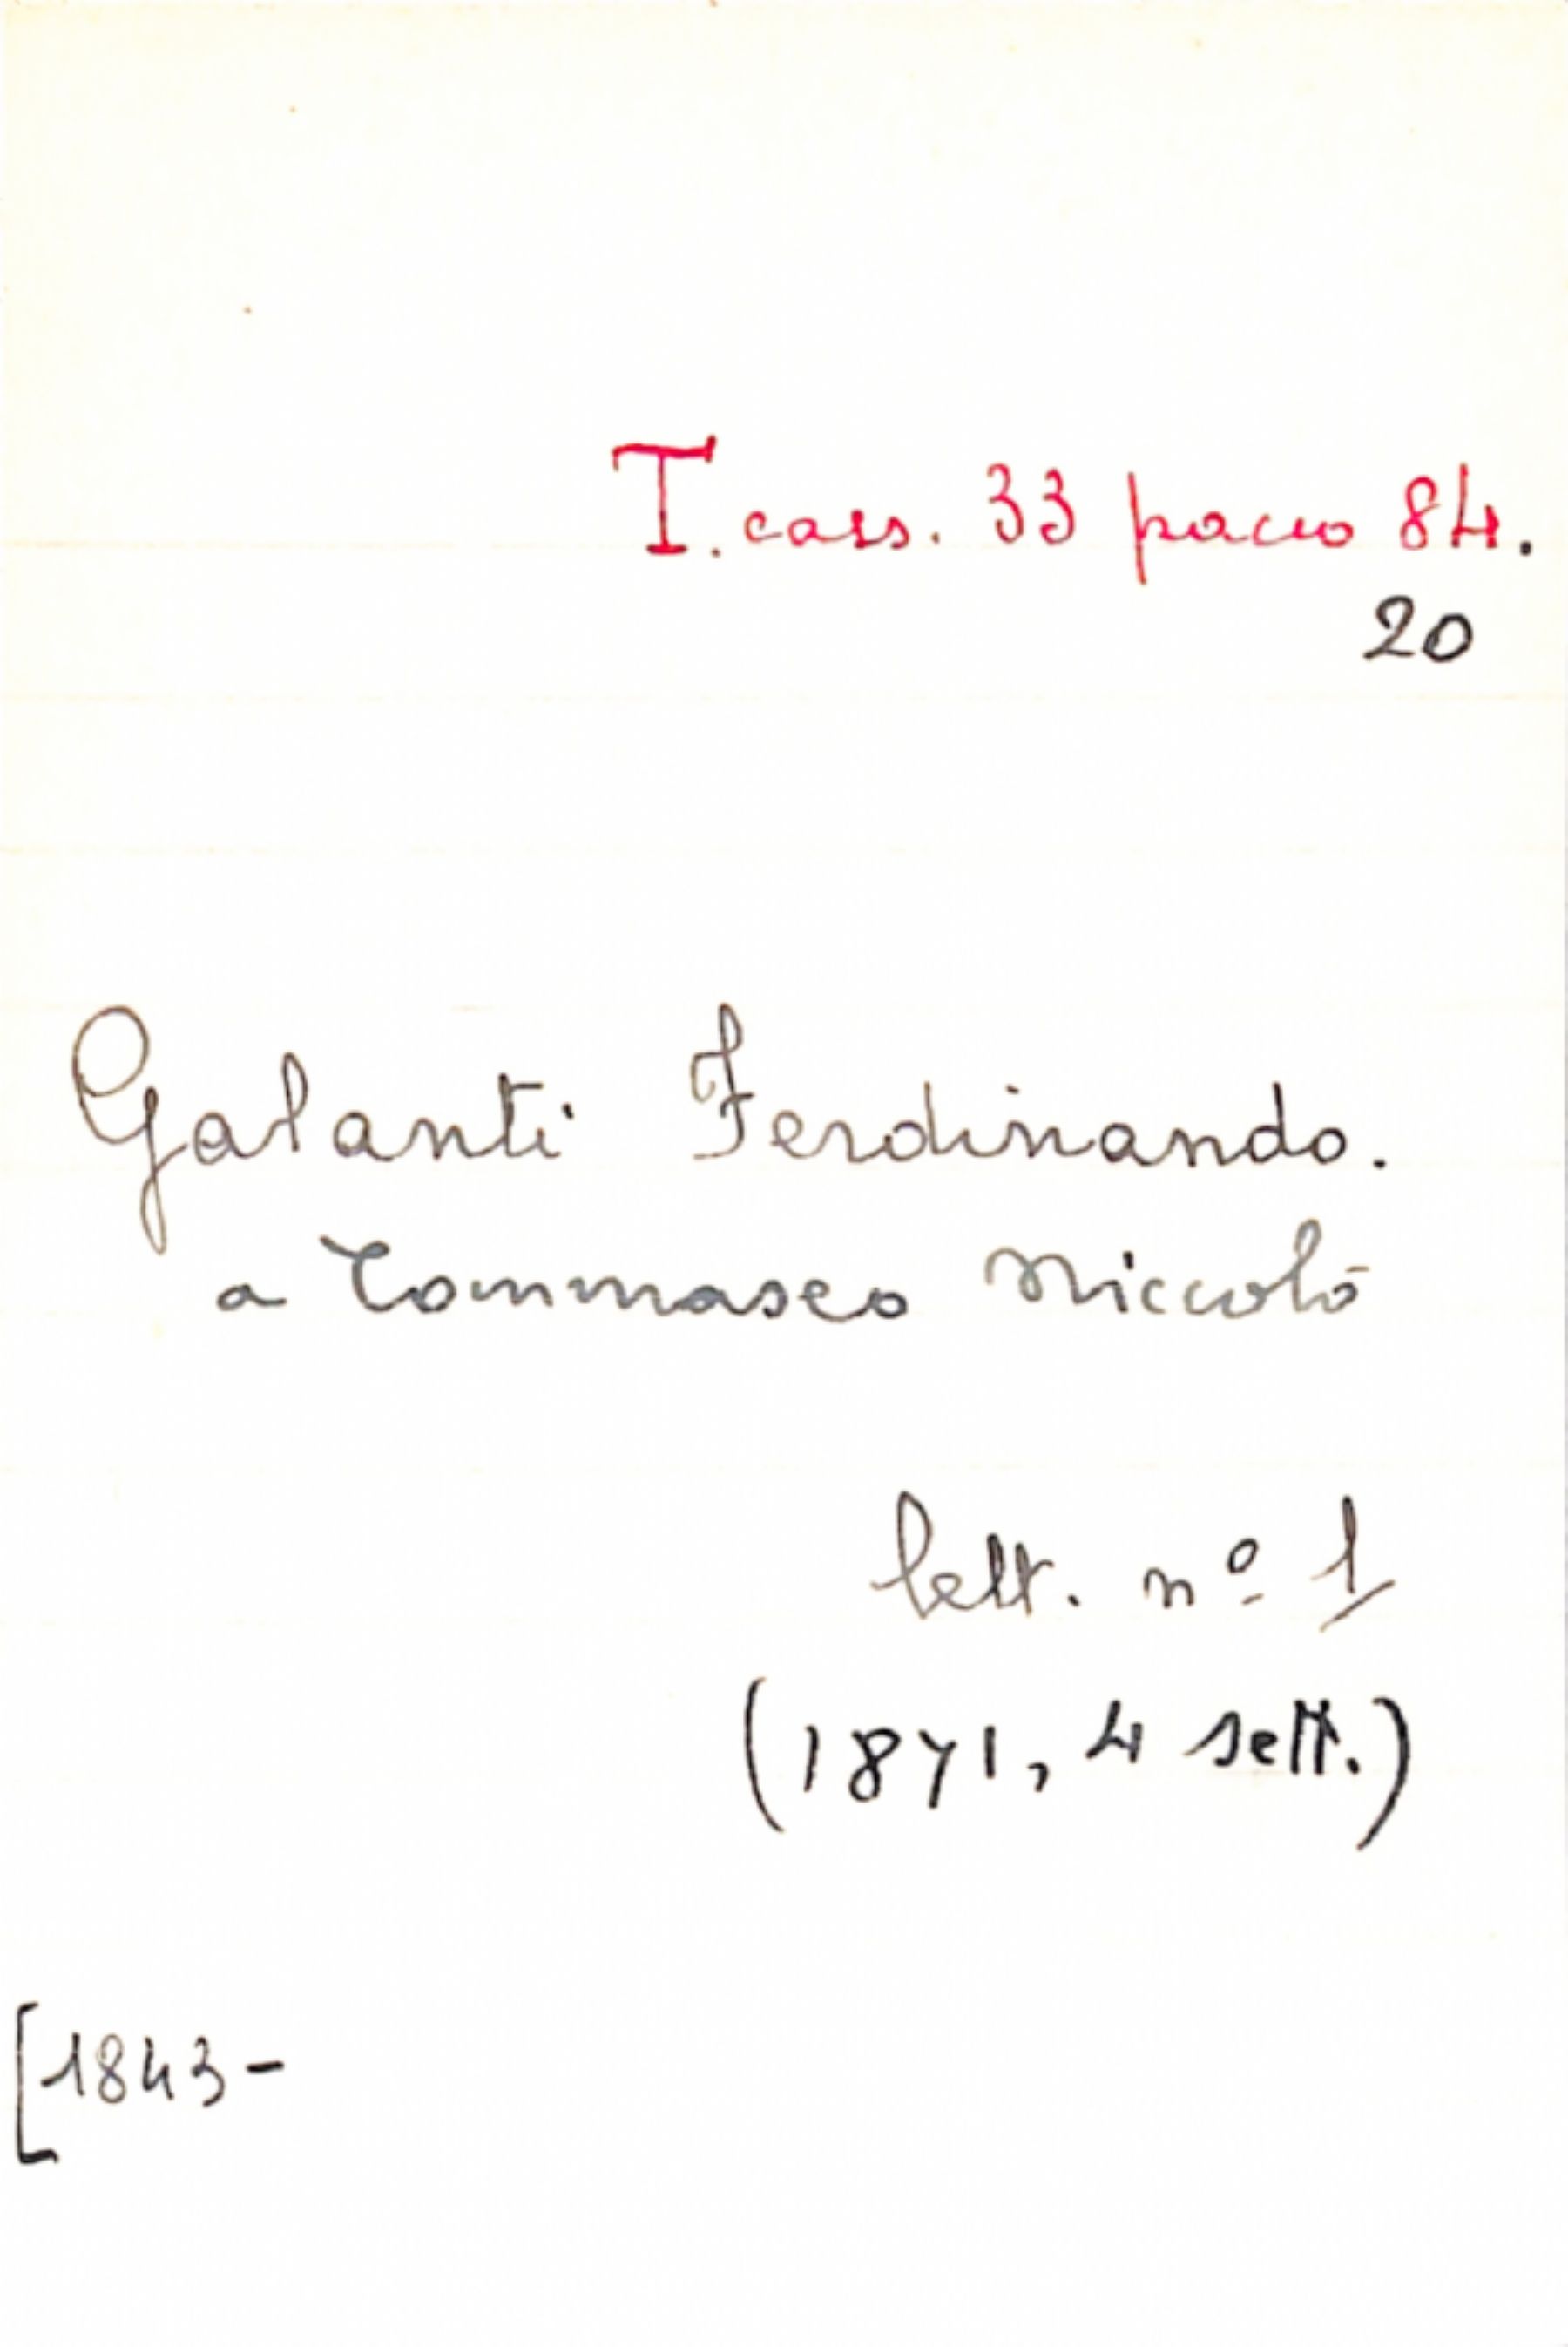 T. cass. 33 pacco 84.
20
Galanti Ferdinando.
a Tommaseo Niccolò
lett. nº 1
(1871, 4 sett.)
[1843-